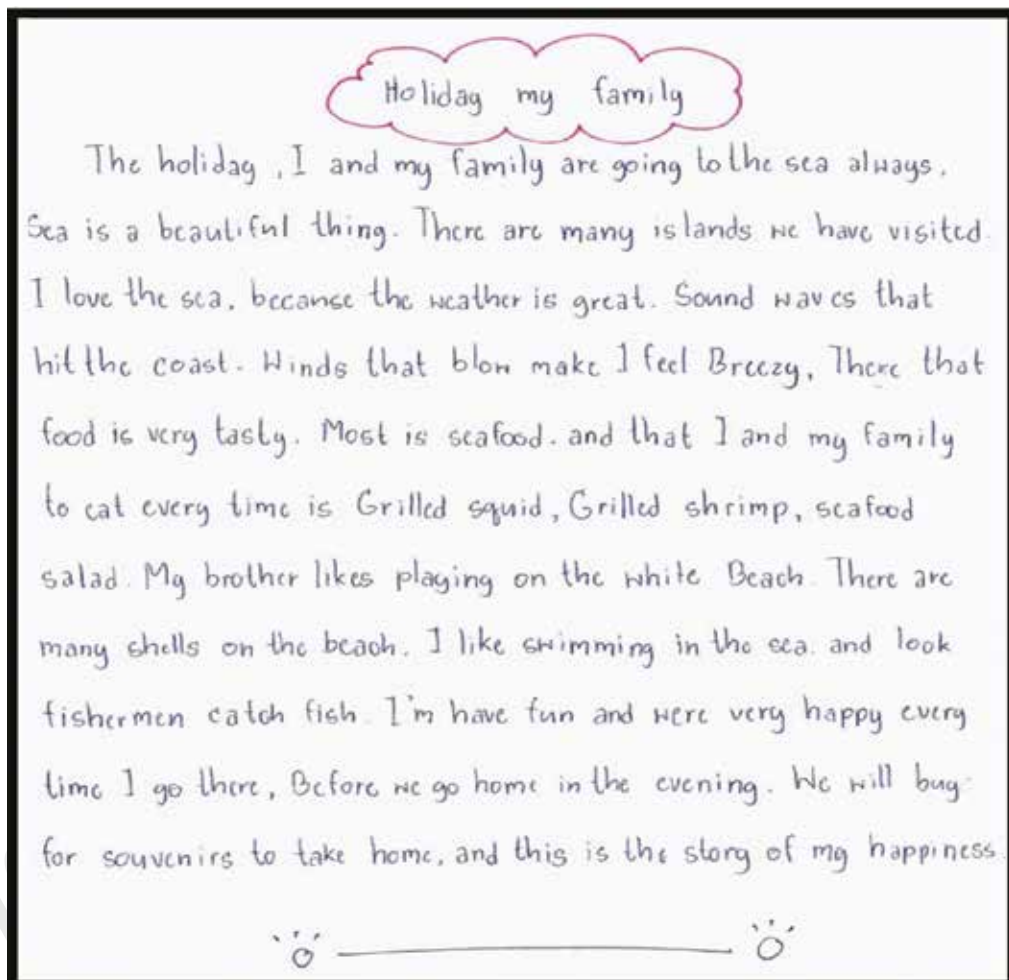 Holiday my family
The holiday , I and my family are going to the sea always.
Sea is a beautiful thing. There are many islands we have visited.
I love the sea. because the weather is great. Sound waves that
hit the coast. Winds that blow make I feel Breezy, There that
food is very tasty. Most is seafood. and that I and my family
to eat every time is Grilled squid, Grilled shrimp, seafood
salad. My brother likes playing on the white Beach. There are
many shells on the beach. I like swimming in the sea. and look
fishermen catch fish. I'm have fun and were very happy every
time I go there, Before we go home in the evening. We will buy
for souvenirs to take home. and this is the story of my happiness.